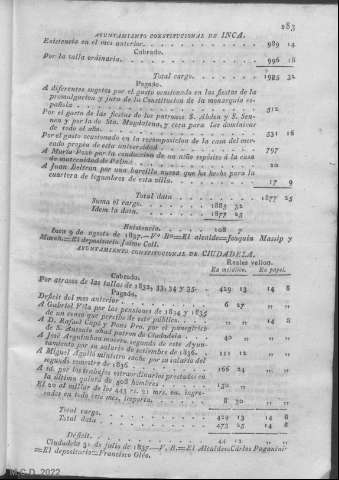 283
AYUNTAMIENTO CONSTITUCIONAL DE INCA.
Existencia en el mes anterior. 989 14
Cobrado.
Por la talla ordinaria. 996 18
Total cargo. 1985 32
Pagado.
A diferentes sugetos por el gasto ocasionado en las fiestas de la
promulgacion y jura de la Constitucion de la monarquía es-
pañola 512
Por el gasto de las fiestas de los patronos S. Abdon y S. Sen-
nen y por la de Sta. Magdalena, y cera para las luminarias
de todo el año. 531 16
Por el gasto ocasionado en la recomposicion de la casa del mer-
cado propia de esta universidad 797
A María Pozo por la conduccion de un niño espósito á la casa
de maternidad de Palma 20
A Juan Beltran por una barcilla nueva que ha hecho para la
cuartera de legumbres de esta villa. 17 9
Total data 1877 25
Suma el cargo. 1985 32
Idem la data. 1877 25
Existencia. 108 7
Inca 9 de agosto de 1837.=V.º B.º=El alcalde=Joaquin Massip y
March.=El depositario Jaime Coll.
AYUNTAMIENTO CONSTITUCIONAL DE CIUDADELA.
Reales vellon.
En metálico. En papel.
Cobrado.
Por atrasos de las tallas de 1832, 33, 34 y 35. 429 13 14 8
Pagado.
Deficit del mes anterior 6 27 „ „
A Gabriel Vila por las pensiones de 1834 y 1835
de un censo que percibe de este público. „ „ 14 8
A D. Rafael Capó y Pons Pro. por el panegírico
de S. Antonio abad patron de Ciudadela. 40 „ „ „
A José Arguimbau macero segundo de este Ayun-
tamiento por su salario de setiembre de 1836. 111 12 „ „
A Miguel Aguiló ministro sache por su salario del
segundo semestre de 1836. 166 24 „ „
A id. por los trabajos extraordinarios prestados en
la última quinta de 408 hombres 130 „ „ „
El 20 al millar de los 443 rs. 21 mrs. en. ingre-
sados en todo este mes, importa. 8 30 „ „
Total cargo. 429 13 14 8
Total data 473 25 14 8
Déficit. 44 12 „ „
Ciudadela 31 de julio de 1837.—V. B.=El Alcalde=Carlos Paganini
=El depositario=Francisco Oléo.
M.C.D. 2022